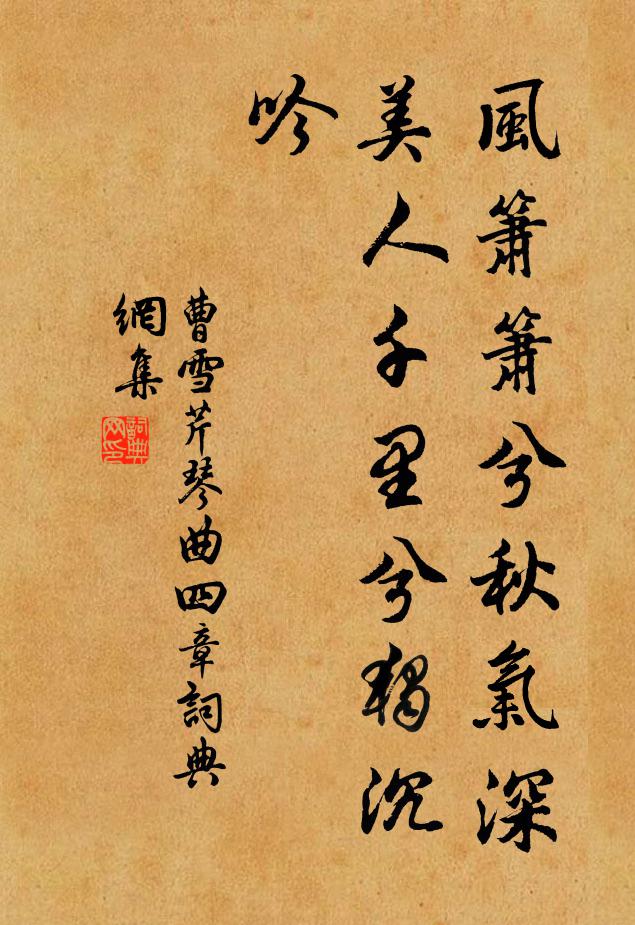 風簫簫兮秋氣深
美人千里兮獨沉
吟
曹雪芹琴曲四章詞典
網集
詞典
网印